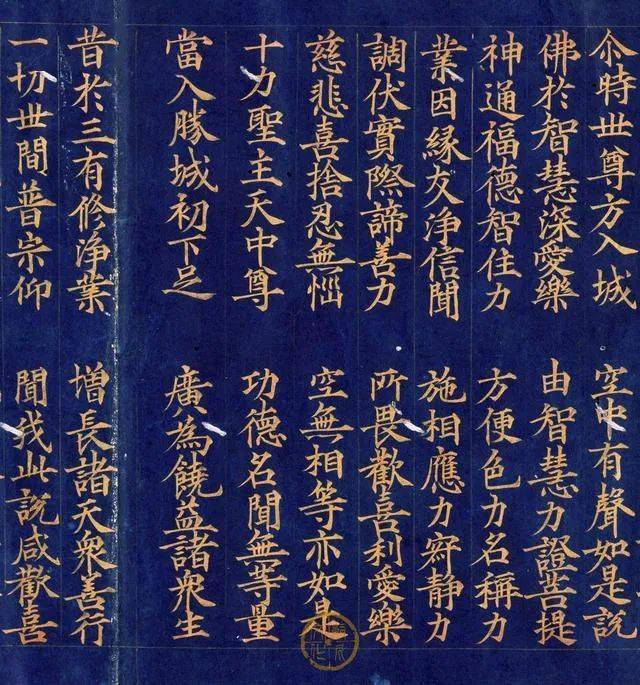 尒時世尊方入城 空中有聲如是說
佛於智慧深愛樂 由智慧力證菩提
神通福德智住力 方便色力名稱力
業因緣友淨信聞 施相應力寂静力
調伏實際諦善力 所畏歡喜利愛樂
慈悲喜捨忍無㤪 空無相等亦如是
十力聖主天中尊 功德名聞無等量
當入勝城初下足 廣為饒益諸衆生
昔於三有修淨業 增長諸天衆善行
一切世間普宗仰 聞我此說咸歡喜